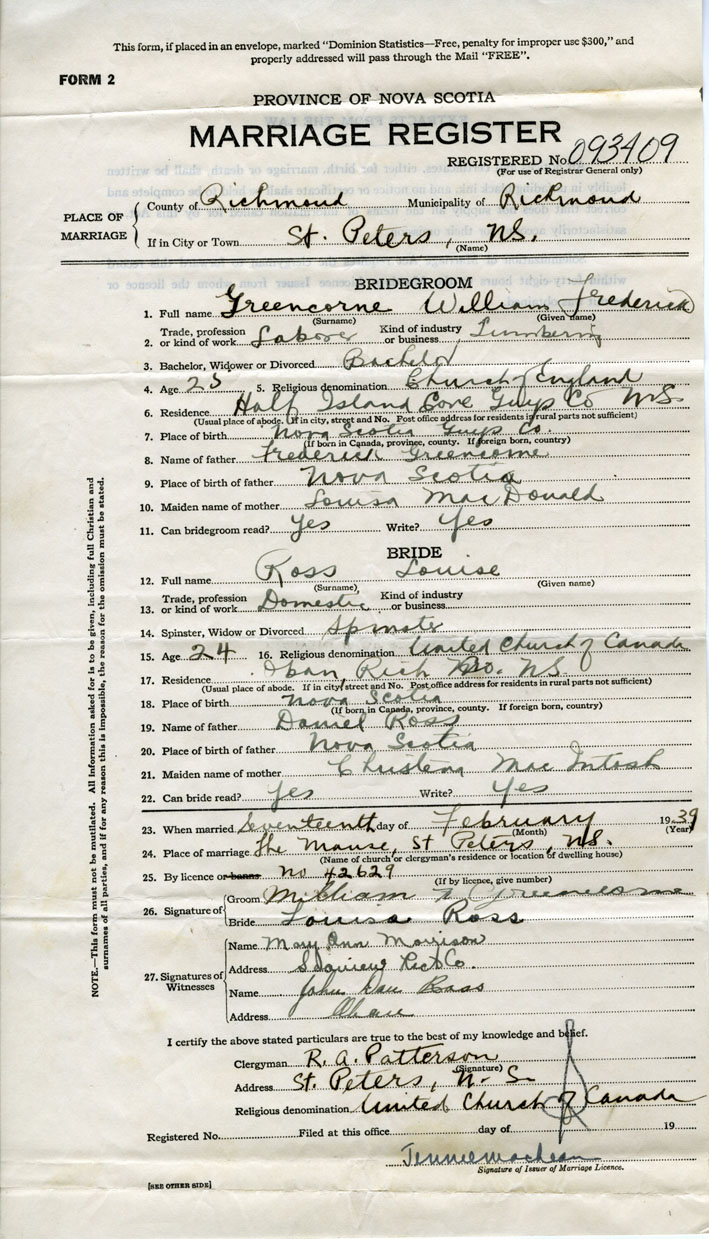 This form, if placed in an envelope, marked "Dominion Statistics—Free, penalty for improper use $300," and
properly addressed will pass through the Mail "FREE".
FORM 2
PROVINCE OF NOVA SCOTIA
MARRIAGE REGISTER
REGISTERED No. 093409
(For use of Registrar General only)
PLACE OF MARRIAGE
County of Richmond Municipality of Richmond
If in City or Town St. Peters, N.S.
(Name)
BRIDEGROOM
1. Full name Greencorne William Frederick
(Surname) (Given name)
2. Trade, profession or kind of work Labore Kind of industry or business Lumbering
3. Bachelor, Widower or Divorced Bachelor
4. Age 25 5. Religious denomination Church of England
6. Residence Half Island Cove Guys Co N.S.
(Usual place of abode. If in city, street and No. Post office address for residents in rural parts not sufficient)
7. Place of birth Nova Scotia Guys Co.
(If born in Canada, province, county. If foreign born, country)
8. Name of father Frederick Greencorne
9. Place of birth of father Nova Scotia
10. Maiden name of mother Louisa MacDonald
11. Can bridegroom read? Yes Write? Yes
BRIDE
12. Full name Ross Louise
(Surname) (Given name)
13. Trade, profession or kind of work Domestic Kind of industry or business
14. Spinster, Widow or Divorced Spinster
15. Age 24 16. Religious denomination United Church of Canada
17. Residence Oban, Rich Co. N.S.
(Usual place of abode. If in city street and No. Post office address for residents in rural parts not sufficient)
18. Place of birth Nova Scotia
(If born in Canada, province, county. If foreign born, country)
19. Name of father Daniel Ross
20. Place of birth of father Nova Scotia
21. Maiden name of mother Christena MacIntosh
22. Can bride read? Yes Write? Yes
23. When married Seventeenth day of February 1939
(Month) (Year)
24. Place of marriage The Manse, St Peters, N.S.
(Name of church or clergyman's residence or location of dwelling house)
25. By licence or banns no 42629
(If by licence, give number)
26. Signature of
Groom William F Greencorne
Bride Louisa Ross
27. Signatures of Witnesses
Name Mary Ann Morrison
Address Rich Co.
Name John Dan Ross
Address Oban
I certify the above stated particulars are true to the best of my knowledge and belief.
Clergyman R. A. Patterson
(Signature)
Address St. Peters, N. S.
Religious denomination United Church of Canada
Registered No. Filed at this office day of 19
Jennie MacLean
Signature of Issuer of Marriage Licence.
[SEE OTHER SIDE]
NOTE.—This form must not be mutilated. All information asked for is to be given, including full Christian and
surnames of all parties, and if for any reason this is impossible, the reason for the omission must be stated.